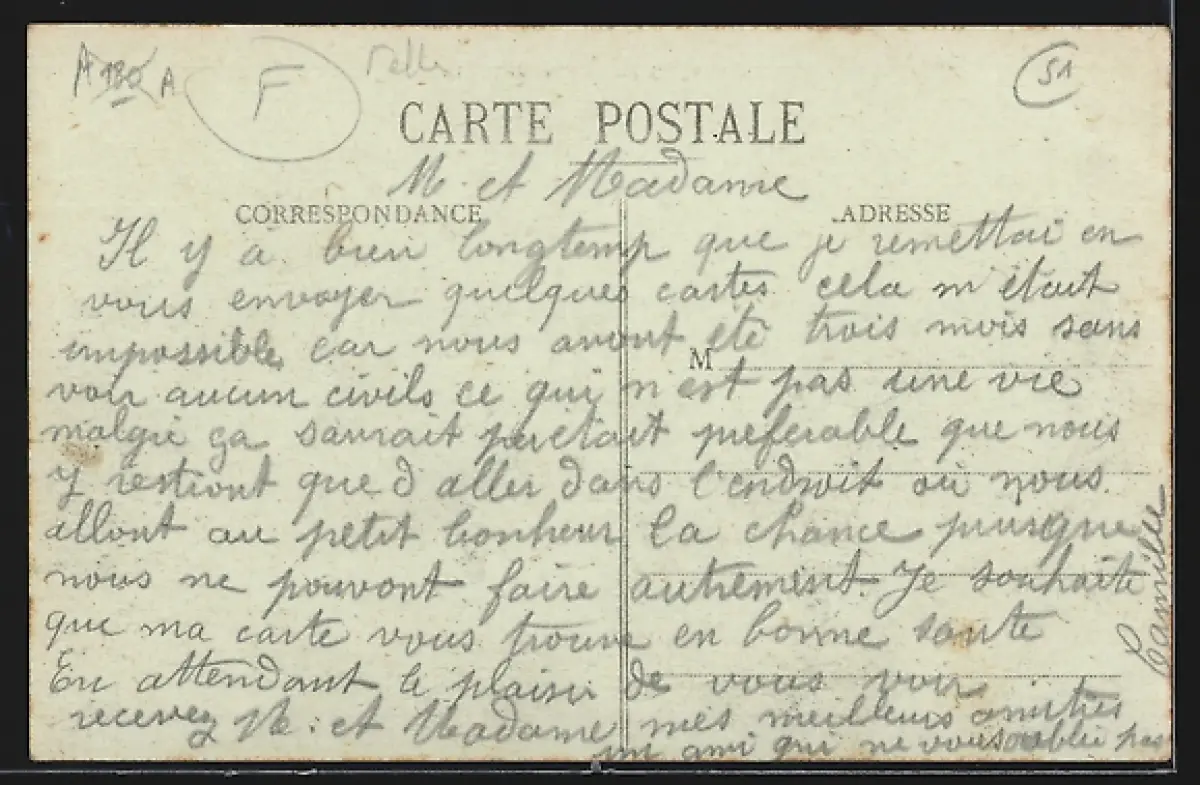 A 180 A
F
51
CARTE POSTALE
M. et Madame
CORRESPONDANCE
ADRESSE
Il y a bien longtemp que je remettai en
vous envoyer quelques cartes cela m'était
impossible car nous avont eté trois mois sans
M
voir aucun civils ce qui n'est pas une vie
malgré ça saurait preferable que nous
y restiont que d aller dans l'endroit où nous
allont au petit bonheur la chance puisque
nous ne pouvont faire autrement. Je souhaite
que ma carte vous trouve en bonne sante
En attendant le plaisir de vous voir
recevez M. et Madame mes meilleurs amitiés
un ami qui ne vous oublie pas
Camille